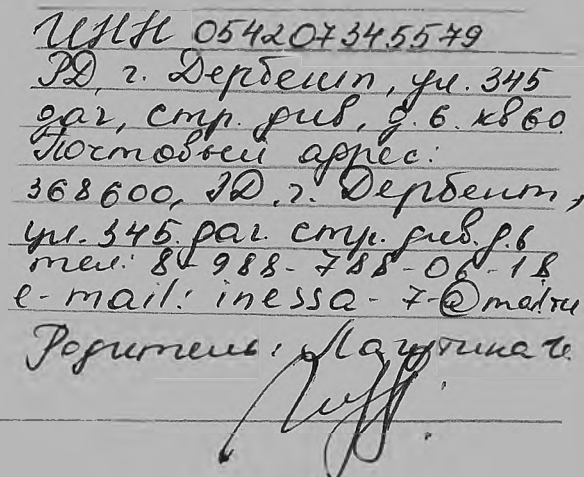 ИНН 054207345579
РД, г. Дербент, ул. 345
даг, стр. див, д. 6. кв 60
Почтовый адрес:
368600, РД. г. Дербент,
ул. 345. даг. стр. див. д. 6
тел: 8-988-788-06-18
e-mail: inessa-7-@mail.ru
Родитель: